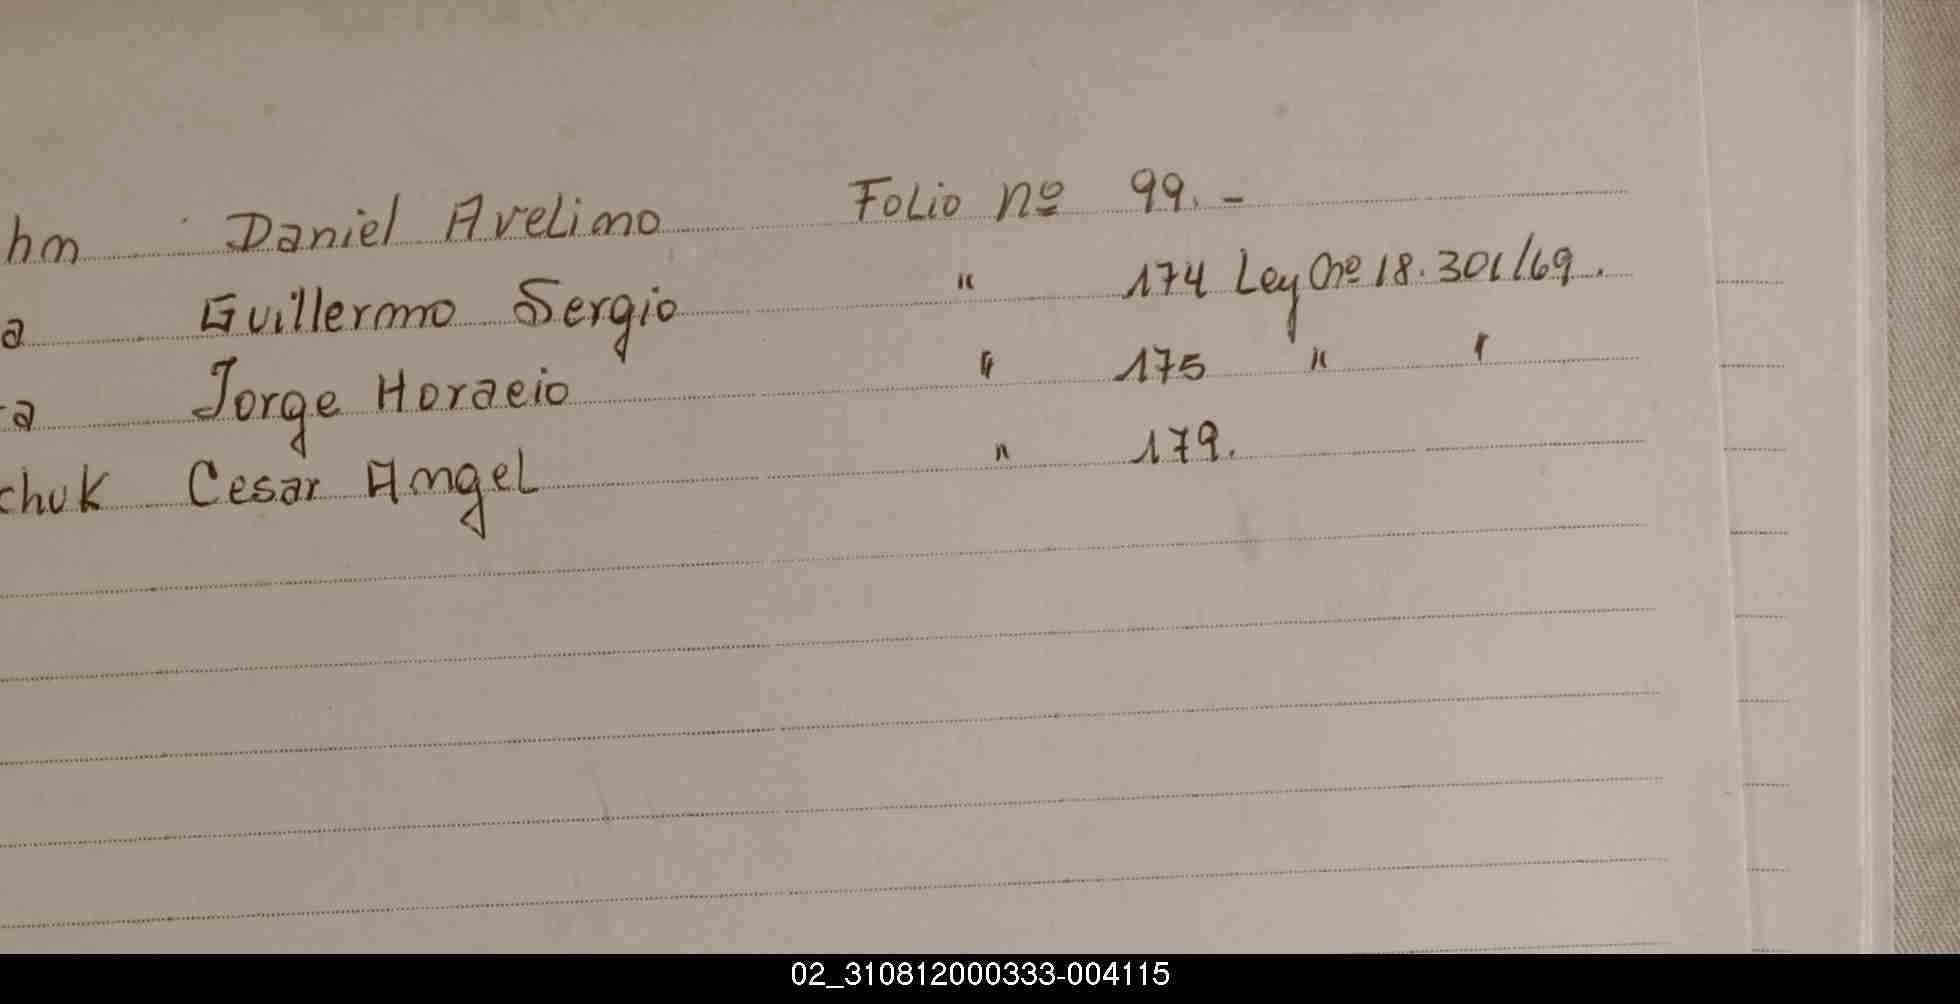 hm Daniel Avelino Folio nº 99.-
a Guillermo Sergio " 174 Ley nº 18.301/69.
ra Jorge Horacio " 175 " "
chuk Cesar Angel " 179.
02_310812000333-004115